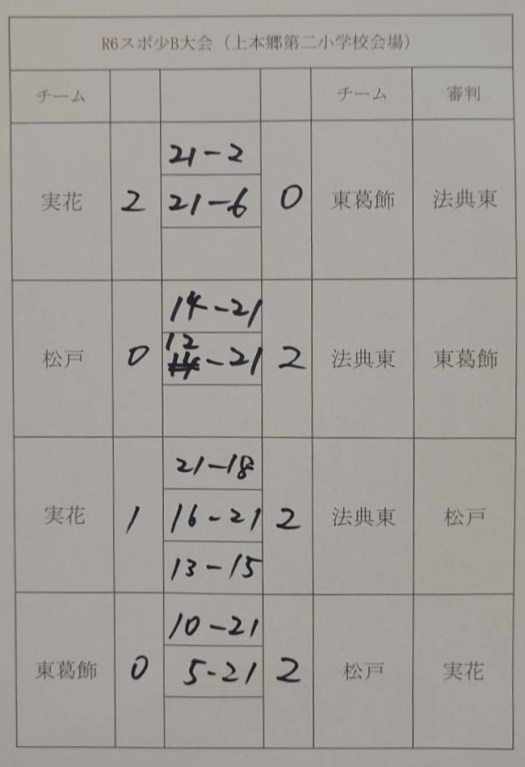 R6スポ少B大会（上本郷第二小学校会場）
チーム チーム 審判
21-2
実花 2 21-6 0 東葛飾 法典東
14-21
松戸 0 12-21 2 法典東 東葛飾
21-18
実花 1 16-21 2 法典東 松戸
13-15
10-21
東葛飾 0 5-21 2 松戸 実花